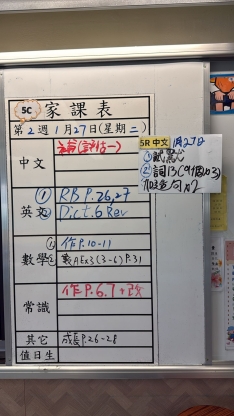 5C 家課表
第2週1月27日(星期二)
中文 補(評估一)
5R 中文 1月27日
①試默尤
②詞15(9個03)
加造句 P.2
英文 ① RB P.26,27
② Dict.6 Rev
數學 ① 作P.10-11
② 數AEx3(3-6)P.31
常識 作P.6,7+改
其它 成長P.26-28
值日生